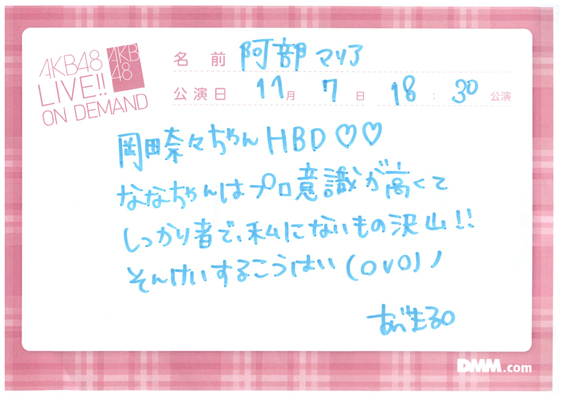 AKB48
LIVE!!
ON DEMAND
AKB
48
名 前 阿部マリア
公演日 11月 7日 18:30 公演
岡田奈々ちゃんHBD♡♡
ななちゃんはプロ意識が高くて
しっかり者で、私にないもの沢山!!
そんけいするこうはい(OVO)ノ
DMM.com